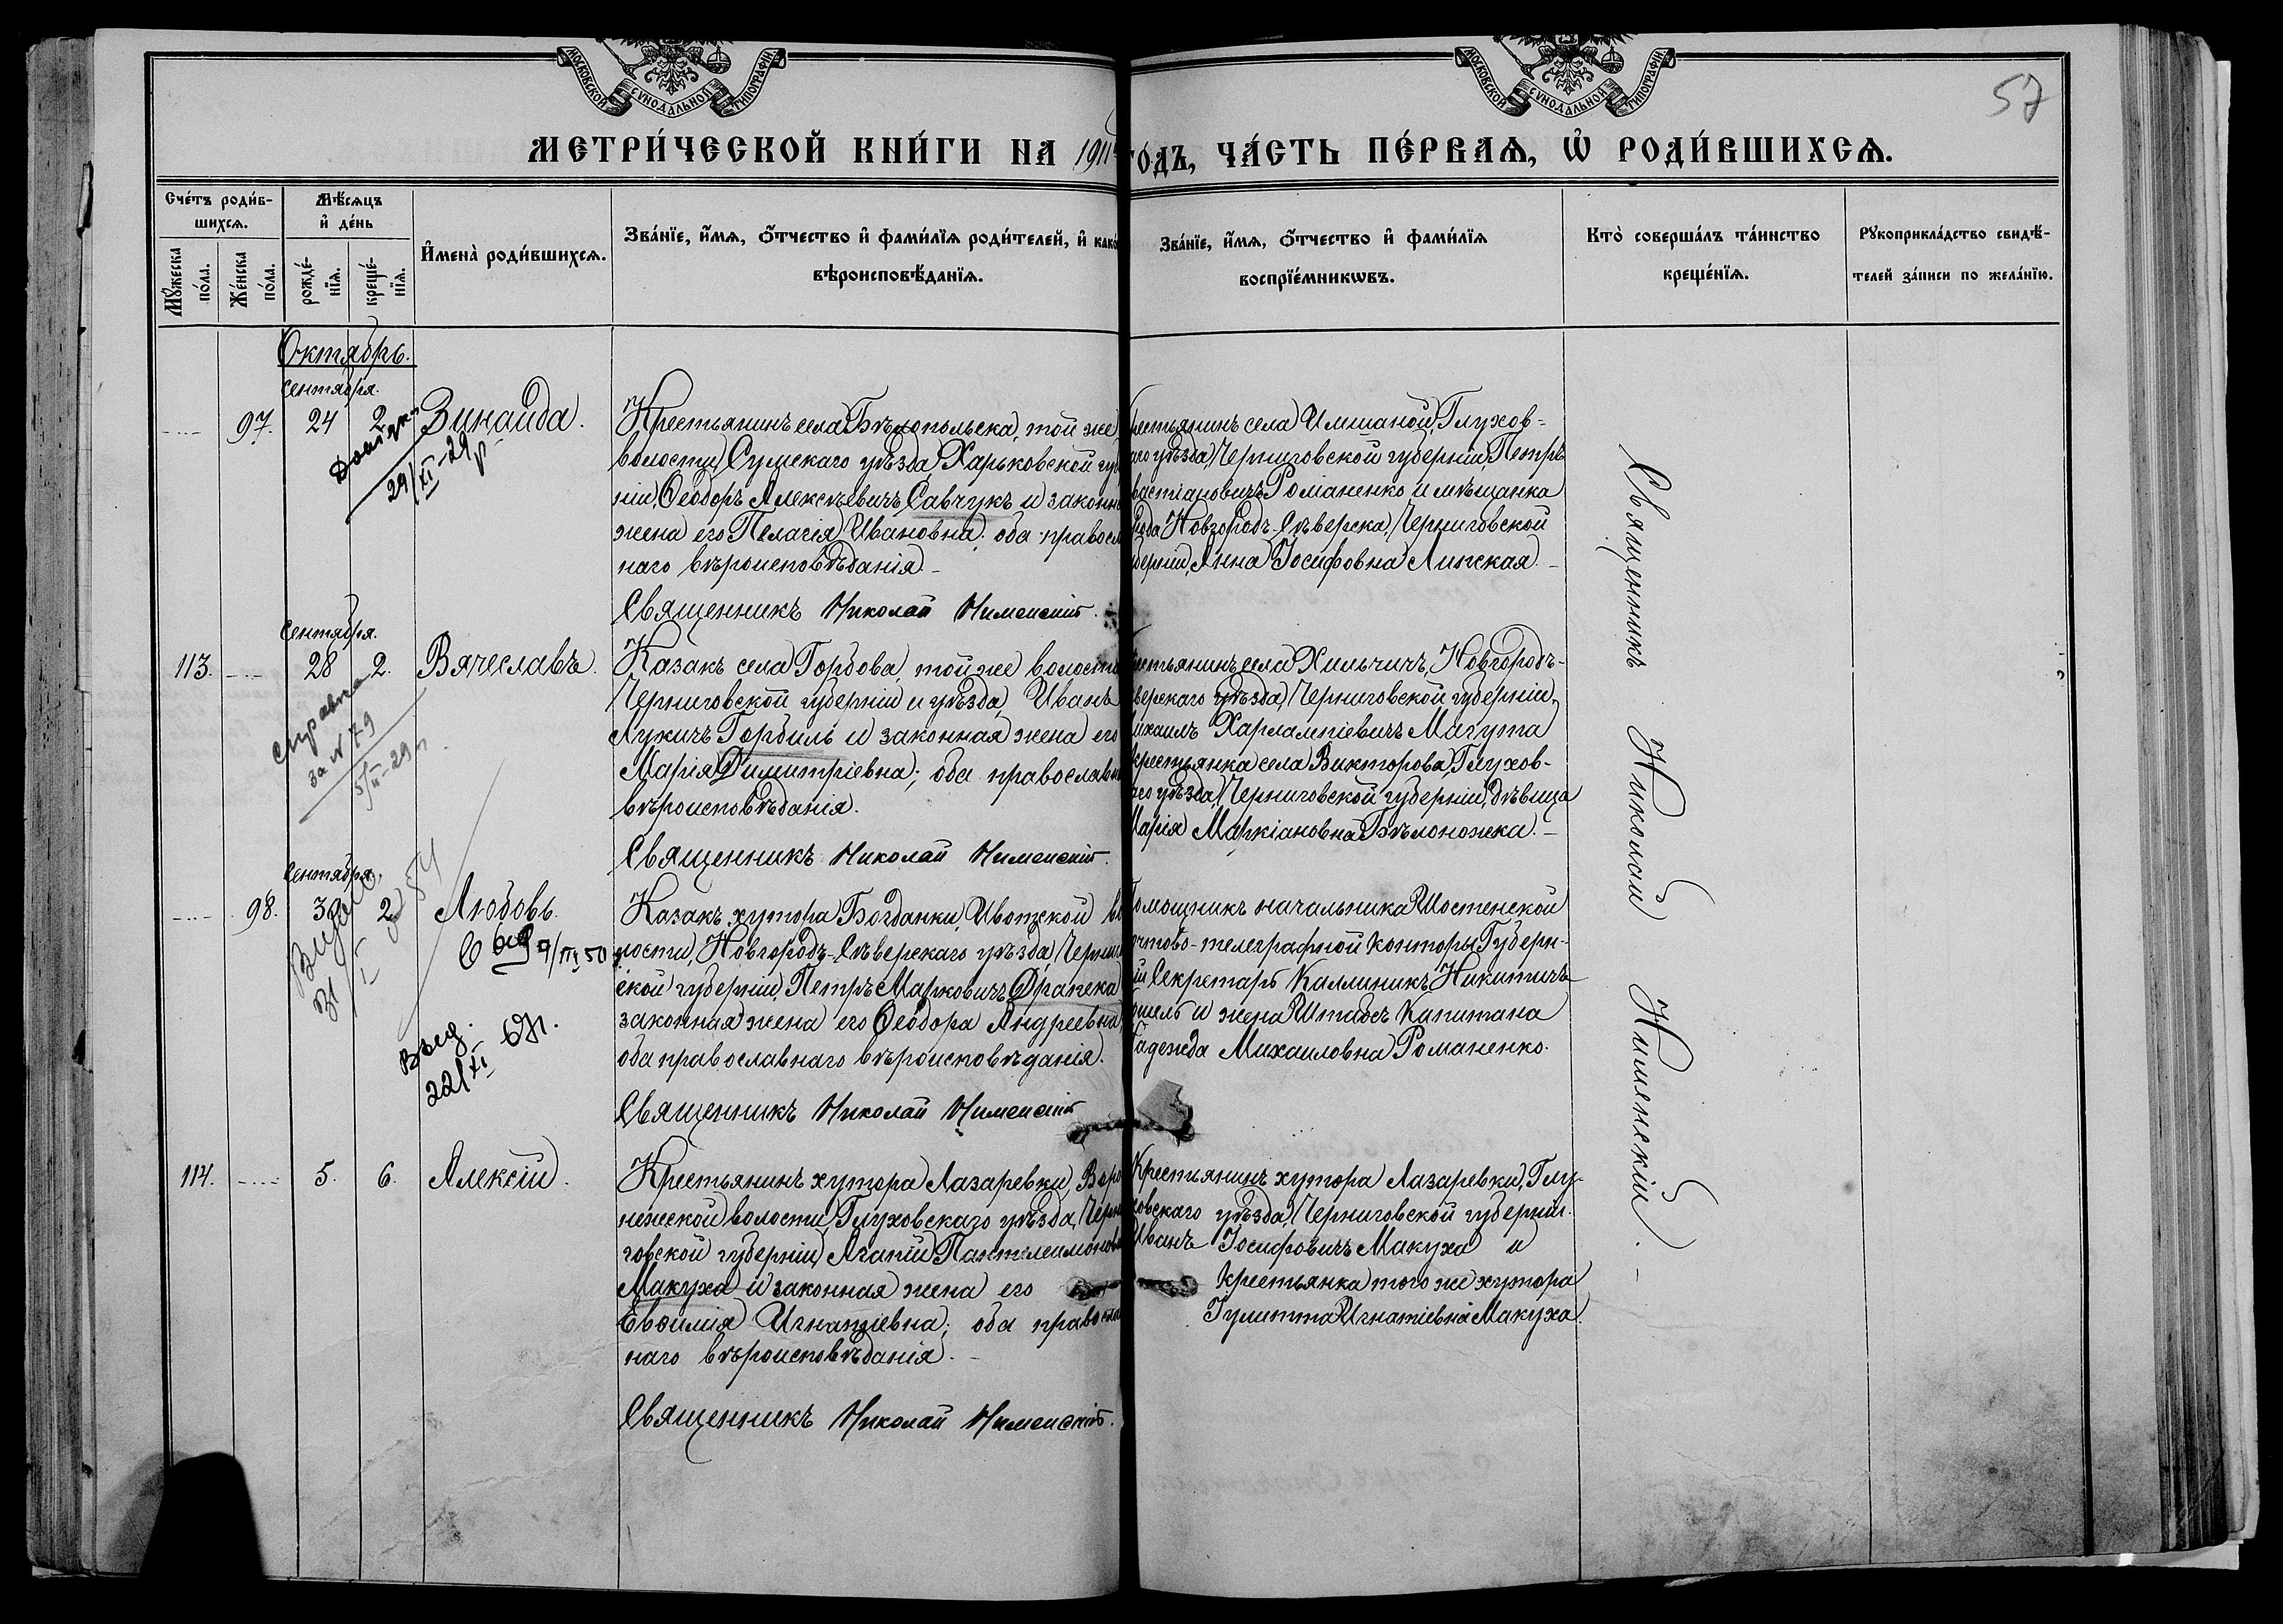 МОСКОВСКОЙ СѴНОДАЛЬНОЙ ТИПОГРАФІИ
МОСКОВСКОЙ СѴНОДАЛЬНОЙ ТИПОГРАФІИ
57
МЕТРИ́ЧЕСКОЙ КНИ́ГИ НА 1911 ГО́ДЪ, ЧА́СТЬ ПЕ́РВАЯ, Ѡ҆ РОДИ́ВШИХСЯ.
Сче́тъ роди́в-
шихся.
Мꙋ́жеска по́ла.
Же́нска по́ла.
Мѣ́сяцъ
и҆ де́нь
рожде́-
нїя.
креще́-
нїя.
И҆мена̀ роди́вшихся.
Зва́нїе, и҆́мя, ѻ҆́тчество и҆ фами́лїя роди́телей, и҆ како
вѣроисповѣ́данїя.
Зва́нїе, и҆́мя, ѻ҆́тчество и҆ фами́лїя
воспрїе́мникѡвъ.
Кто̀ соверша́лъ та́инство
креще́нїя.
Рꙋкоприкла́дство свидѣ́-
телей за́писи по жела́нїю.
Октябрь.
Сентября.
97. 24 2 Зинаида.
29/XI-29 р
Крестьянинъ села Бѣлопольска, той же
волости, Сумскаго уѣзда, Харьковской гу
ніи, Ѳеодоръ Алексѣевичъ Савчукъ и законн
жена его Пелагія Ивановна; оба правосл
наго вѣроисповѣданія.
Священникъ Николай Нименскій.
стьянинъ села Имшаной, Глухов-
аго уѣзда, Черниговской губерніи, Петръ
вастіановичъ Романенко и мѣщанка
рода Новгородъ-Сѣверска, Черниговской
берніи, Анна Іосифовна Линская.
Сентября.
113. 28 2. Вячеславъ.
Справка
за № 79
5/II-29 г.
Казакъ села Горбова, той же волости
Черниговской губерніи и уѣзда, Иванъ
Лукичъ Горбиль и законная жена его
Марія Димитріевна; оба православн
вѣроисповѣданія.
Священникъ Николай Нименскій.
естьянинъ села Хильчичъ, Новгородъ-
верскаго уѣзда, Черниговской губерніи,
ихаилъ Харлампіевичъ Магута
крестьянка села Викторова, Глухов-
аго уѣзда, Черниговской губерніи, дѣвица
Марія Маркіановна Бѣлоножка.
Сентября
98. 30 2. Любовь.
9/III 50
22/XI 69 г.
Казакъ хутора Богданки, Ивотской во
лости, Новгородъ-Сѣверскаго уѣзда, Черниг
ской губерніи, Петръ Марковичъ Драпека
законная жена его Ѳеодора Андреевна;
оба православнаго вѣроисповѣданія.
Священникъ Николай Нименскій
омощникъ начальника Шостенской
чтово-телеграфной конторы, Губерн-
ій Секретарь Каллиникъ Никитичъ
и жена Штабсъ Капитана
Надежда Михаиловна Романенко.
114. 5. 6. Алексій.
Крестьянинъ хутора Лазаревки, Воро
нежской волости, Глуховскаго уѣзда, Черни
говской губерніи, Агапій Пантелеимонов
Макуха и законная жена его
Евѳимія Игнатіевна; оба правосла
наго вѣроисповѣданія.
Священникъ Николай Нименскій.
Крестьянинъ хутора Лазаревки, Глу-
ховскаго уѣзда, Черниговской губерніи.
Иванъ Іосифовичъ Макуха и
крестьянка того же хутора
Іулитта Игнатіевна Макуха.
Священникъ Николай Нименскій.